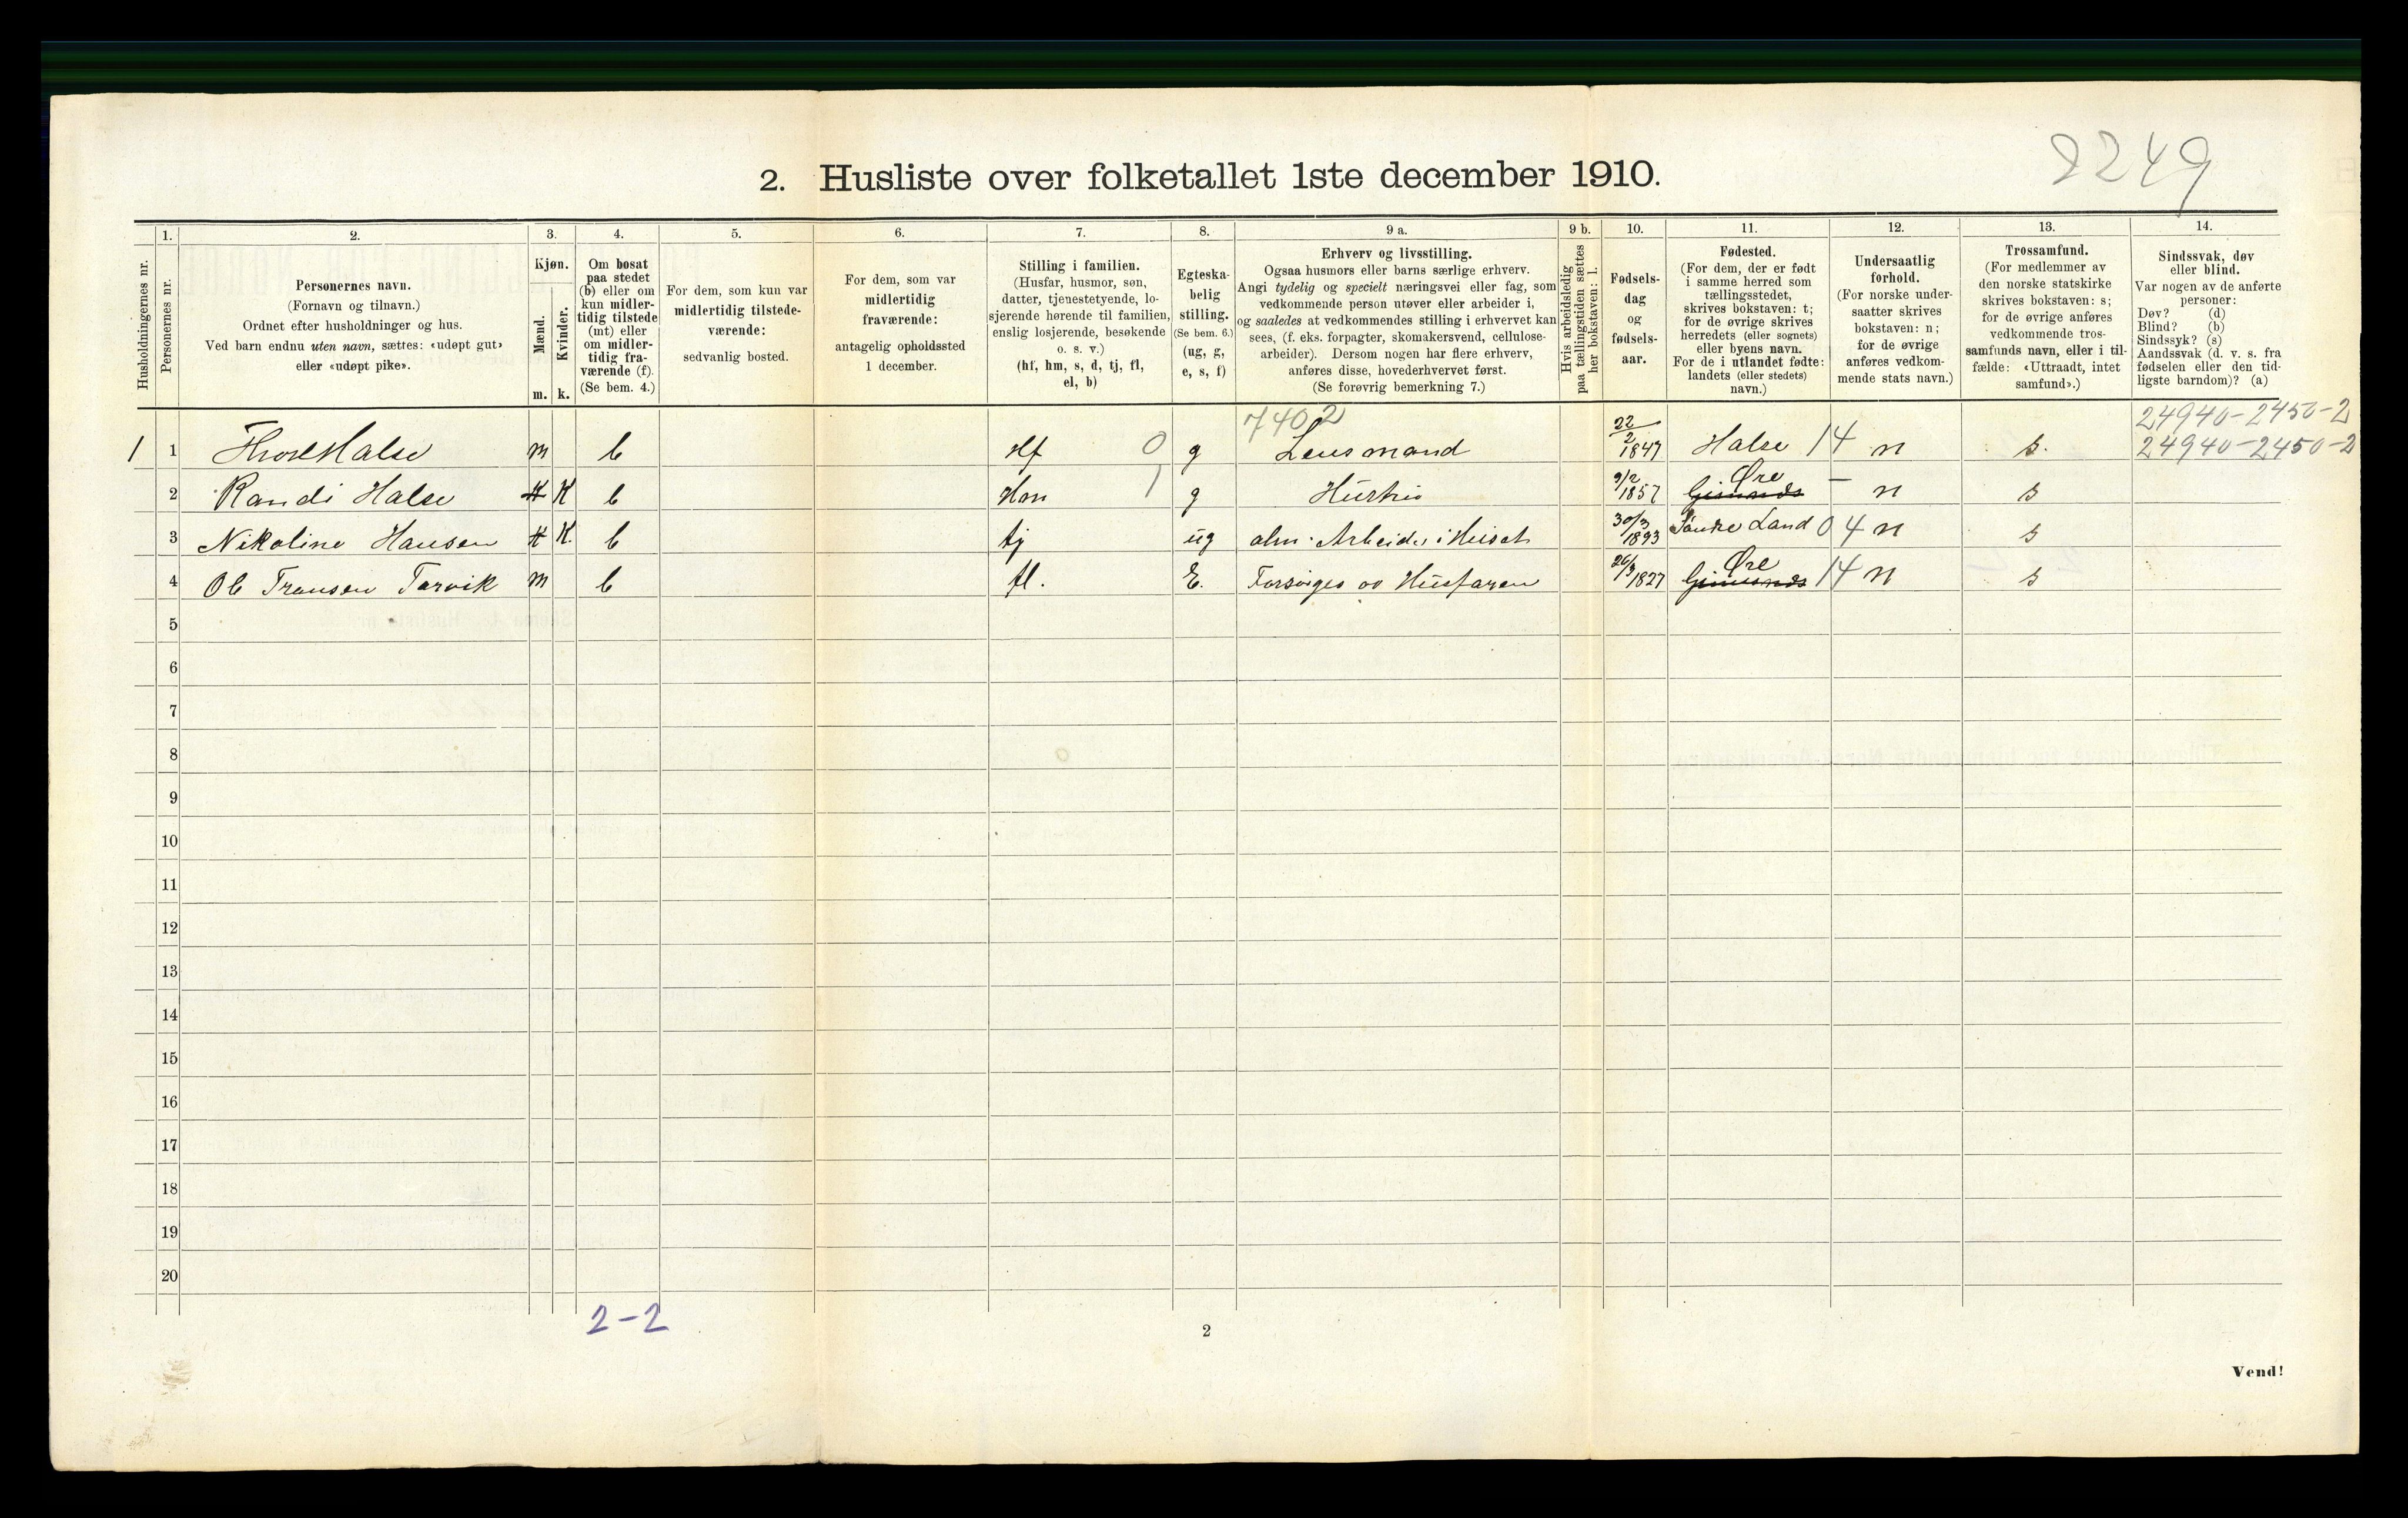 2249
2. Husliste over folketallet 1ste december 1910.
1. 2. 3. 4. 5. 6. 7. 8. 9 a. 9 b. 10. 11. 12. 13. 14.
Husholdningernes nr.
Personernes nr.
Personernes navn.
(Fornavn og tilnavn.)
Ordnet efter husholdninger og hus.
Ved barn endnu uten navn, sættes: «udøpt gut»
eller «udøpt pike».
Kjøn.
Mænd.
Kvinder.
m. k.
Om bosat
paa stedet
(b) eller om
kun midler-
tidig tilstede
(mt) eller
om midler-
tidig fra-
værende (f).
(Se bem. 4.)
For dem, som kun var
midlertidig tilstede-
værende:
sedvanlig bosted.
For dem, som var
midlertidig
fraværende:
antagelig opholdssted
1 december.
Stilling i familien.
(Husfar, husmor, søn,
datter, tjenestetyende, lo-
sjerende hørende til familien,
enslig losjerende, besøkende
o. s. v.)
(hf, hm, s, d, tj, fl,
el, b)
Egteska-
belig
stilling.
(Se bem. 6.)
(ug, g,
e, s, f)
Erhverv og livsstilling.
Ogsaa husmors eller barns særlige erhverv.
Angi tydelig og specielt næringsvei eller fag, som
vedkommende person utøver eller arbeider i,
og saaledes at vedkommendes stilling i erhvervet kan
sees, (f. eks. forpagter, skomakersvend, cellulose-
arbeider). Dersom nogen har flere erhverv,
anføres disse, hovederhvervet først.
(Se forøvrig bemerkning 7.)
Hvis arbeidsledig
paa tællingstiden sættes
her bokstaven: l.
Fødsels-
dag
og
fødsels-
aar.
Fødested.
(For dem, der er født
i samme herred som
tællingsstedet,
skrives bokstaven: t;
for de øvrige skrives
herredets (eller sognets)
eller byens navn.
For de i utlandet fødte:
landets (eller stedets)
navn.)
Undersaatlig
forhold.
(For norske under-
saatter skrives
bokstaven: n;
for de øvrige
anføres vedkom-
mende stats navn.)
Trossamfund.
(For medlemmer av
den norske statskirke
skrives bokstaven: s;
for de øvrige anføres
vedkommende tros-
samfunds navn, eller i til-
fælde: «Uttraadt, intet
samfund».)
Sindssvak, døv
eller blind.
Var nogen av de anførte
personer:
Døv? (d)
Blind? (b)
Sindssyk? (s)
Aandssvak (d. v. s. fra
fødselen eller den tid-
ligste barndom)? (a)
7402 24940-2450-2
1 1 Thore Halse m b Hf 0 g Lensmand 22/2 1847 Halse 14 n s. 24940-2450-2
2 Randi Halse K b Hm 1 g Hustru 9/2 1857 Øre - n s
3 Nikoline Hansen K. b tj ug alm. Arbeide i Huset 30/3 1893 Søndre Land 04 n s
4 Ole Transen Tarvik m b fl. E. Forsørges av Husfaren 26/3 1827 Øre 14 n s
5
6
7
8
9
10
11
12
13
14
15
16
17
18
19
20
2-2
2
Vend!